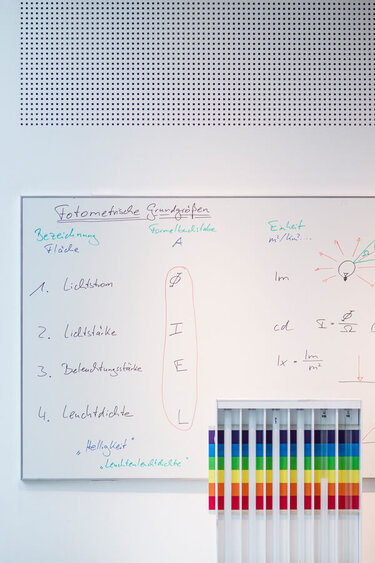 Fotometrische Grundgrößen
Bezeichnung Formelbuchstabe Einheit
Fläche A m²/km²...
1. Lichtstrom Φ lm
2. Lichtstärke I cd I = Φ/Ω
3. Beleuchtungsstärke E lx = lm/m²
4. Leuchtdichte L
„Helligkeit"
„Leuchtenleuchtdichte"